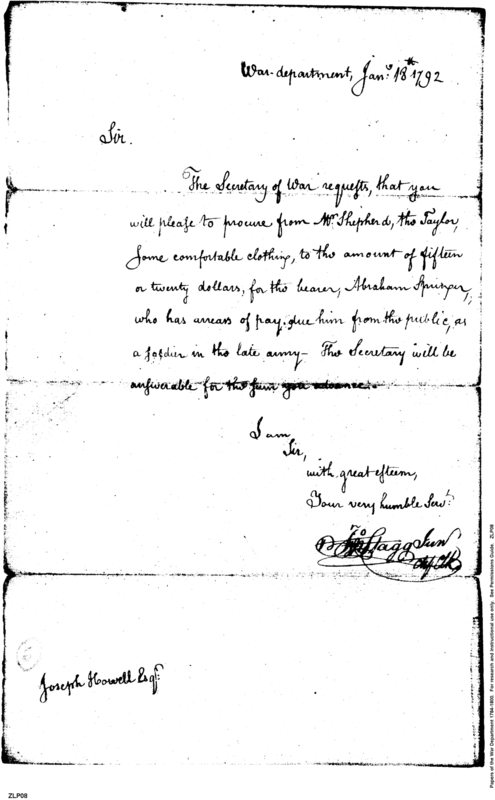 War-department, Jany. 18th 1792
Sir.
The Secretary of War requests, that you
will please to procure from Mr Shepherd, the Taylor,
some comfortable clothing, to the amount of fifteen
or twenty dollars, for the bearer, Abraham Springer,
who has arrears of pay due him from the public, as
a soldier in the late army – The Secretary will be
answerable for the sum you advance.
I am,
Sir,
with great esteem,
Your very humble Servt.
Jno Stagg Junr
Chf Clk
Joseph Howell Esqr.
ZLP08
Papers of the War Department 1784-1800. For research and instructional use only. See Permissions Guide. ZLP08